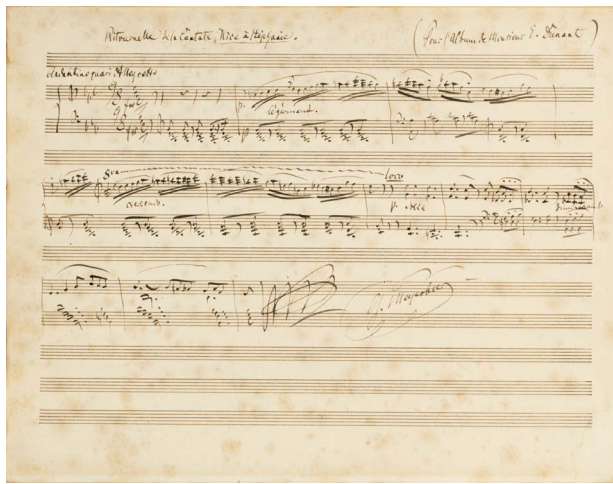 Ritournelle de la Cantate, Nice à Stéphanie.
(Pour l'Album de Monsieur E. Dunant)
Andantino quasi Allegretto
légèrement.
8va
loco
crescend.
G. Meyerbeer